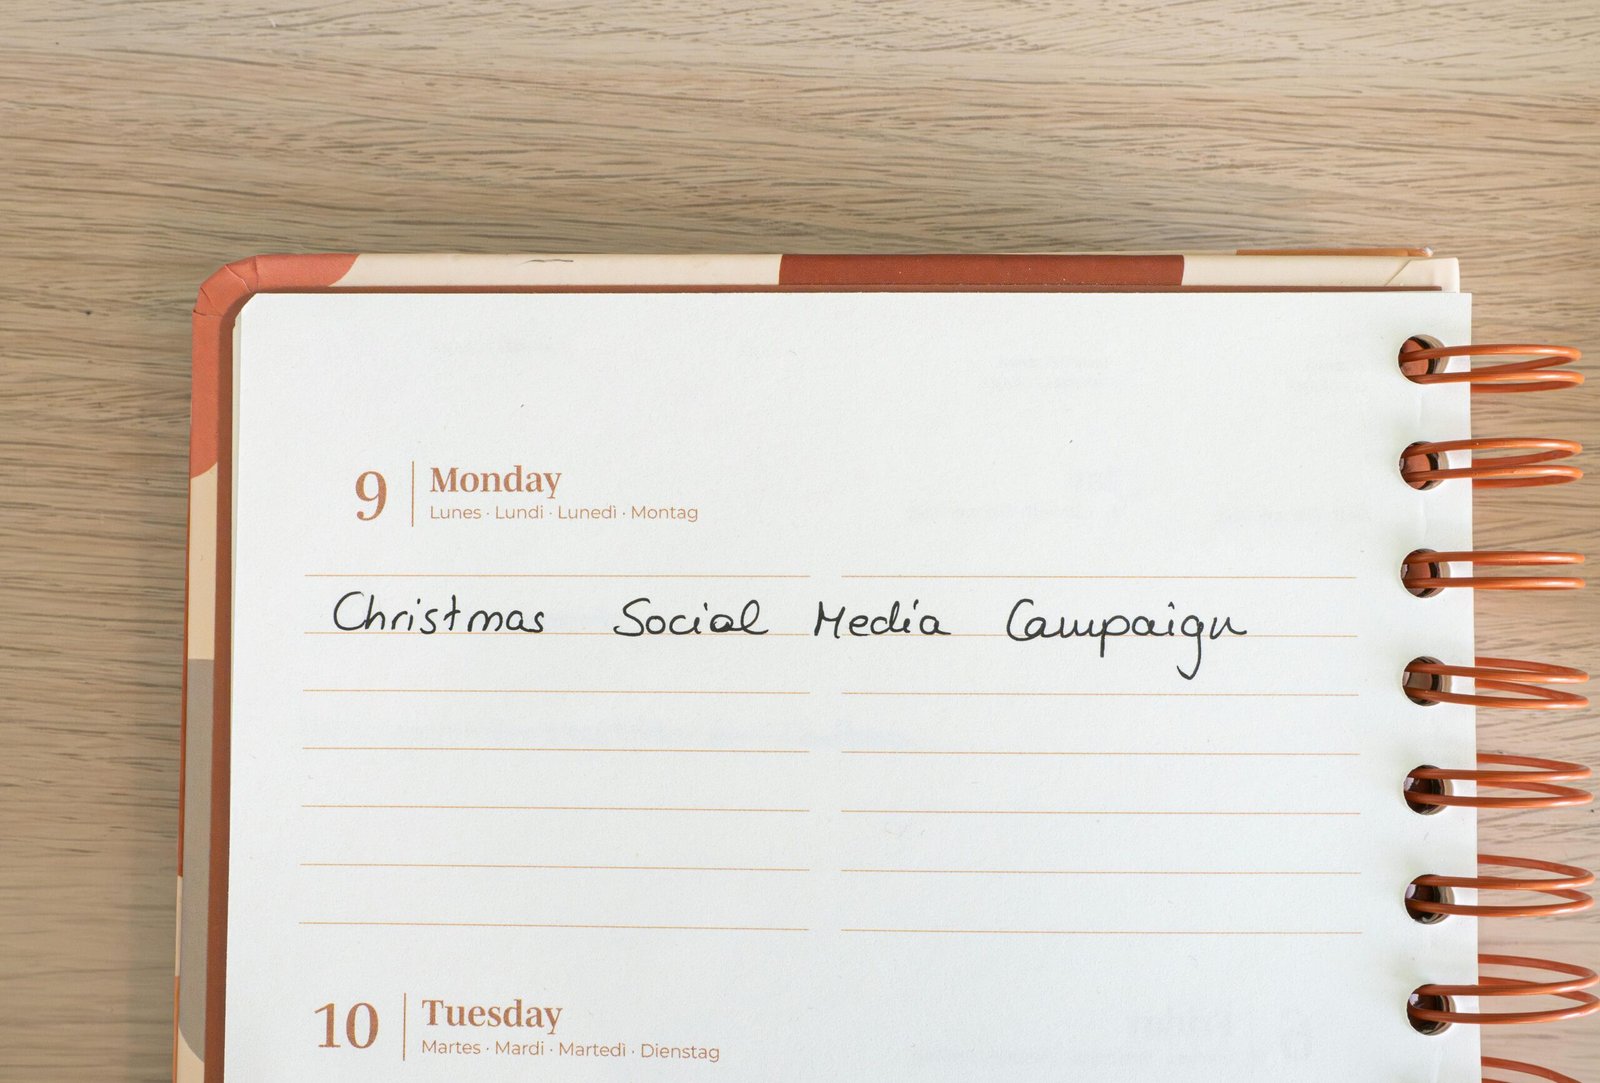 9 Monday
Lunes · Lundi · Lunedì · Montag
Christmas Social Media Campaign
10 Tuesday
Martes · Mardi · Martedì · Dienstag